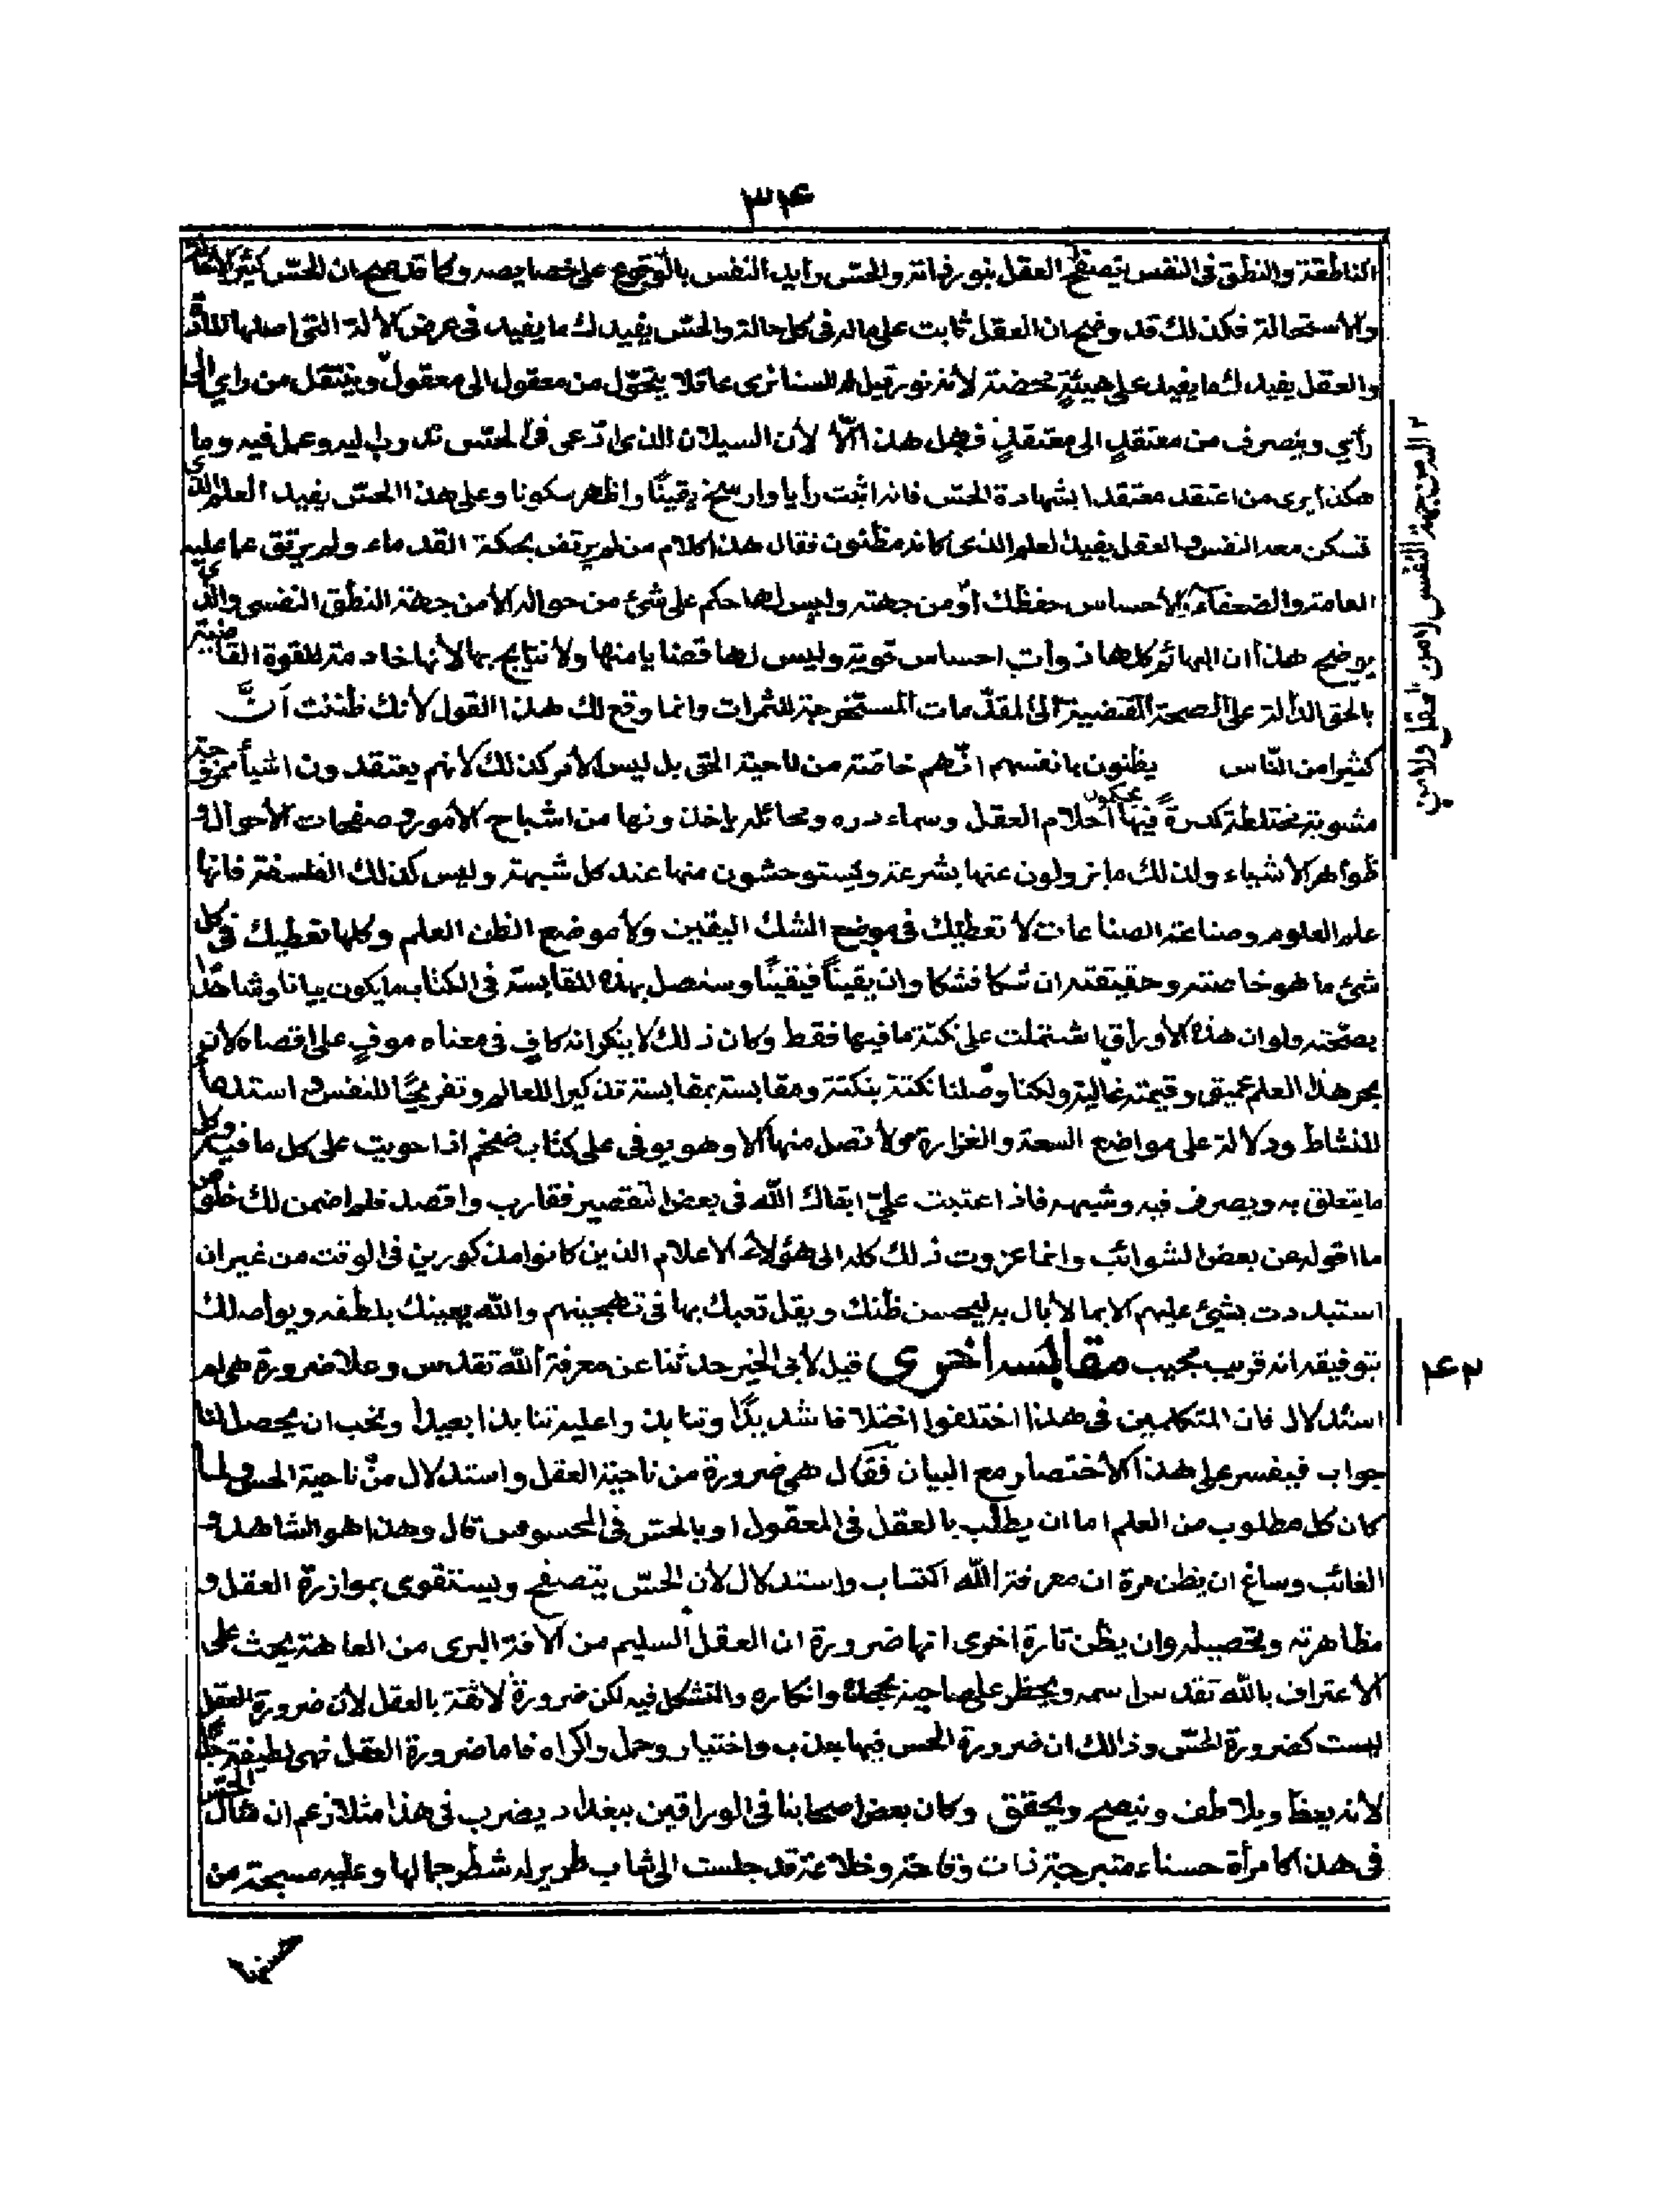 ٣٤
الناطقة والنطق فى النفس يتصفح العقل بنور فهاته والحس رايد النفس بالوقوع على خصايصه وكما قد صح ان الحس كثير الاحالة
والاستحالة فكذلك قد وضح ان العقل ثابت على ماله فى كل حالة والحس يفيدك ما يفيد فى عرض الالة التى اصلها المادة
والعقل يفيدك ما يفيد على هيئةٍ محضة لانه نور قيل له السنا نرى عاقلا يتحوّل من معقول الى معقول وينتقل من راي الى
رأيٍ وينصرف من معتقدٍ الى معتقدٍ فهل هذا الّا لأن السيلان الذى ادّعى فى الحسّ قد دب اليه وعمل فيه وما
هكذا يرى من اعتقد معتقدا بشهادة الحسّ فانه اثبت رأيا وارسخ يقينًا واظهر سكونا وعلى هذا الحسّ يفيد العلم الذى
تسكن معه النفس والعقل يفيد العلم الذى كانه مظنون فقال هذا كلام من لم يرتض بحكمة القدماء ولم يرتق عما عليه
العامة والضعفاء الاحساس حفظك او من جهته وليس لها حكم على شئ من حواله الا من جهة النطق النفسى والذى
يوضح هذا ان البهائم كلها ذوات احساس قوية وليس لها قضايا منها ولا نتايج بها لأنها خادمة للقوة القاضية
بالحق الدالة على الصحة المقتضية الى المقدّمات المستخرجة للثمرات وانما وقع لك هذا القول لأنك ظننت أنَّ
كثيرا من النّاس يظنون بانفسهم انّهم خاصّة من ناحية الحق بل ليس الأمر كذلك لأنهم يعتقدون اشياء ممزوجة
مشوبة مختلطة كدرةً فيها يحكون احلام العقل وسماءه ره ومخائله ياخذونها من اشباح الأمور وصفحات الأحوال و
ظواهر الأشياء ولذلك ما يزولون عنها بسرعة ويستوحشون منها عند كل شبهة وليس كذلك الفلسفة فانها
علم العلوم وصناعة الصناعات لا تعطيك فى موضع الشك اليقين ولا موضع الظن العلم وكلها تعطيك فى كل
شئ ما هو خاصته وحقيقته ان شكا فشكا وان يقيناً فيقينًا وسنصل بهذه المقابسة فى الكتاب ما يكون بيانا وشاهدًا
بصحّته ولو ان هذه الأوراق اشتملت على نكتة ما فيها فقط وكان ذلك لا ينكر انه كافٍ فى معناه موفٍ على اقصاه لان
بحر هذا العلم عميق وقيمته غالية ولكنا وصلنا نكتة بنكتة ومقابسة بمقابسة تذكيرا للعالم وتفريجًا للنفس واستدعاء
للنشاط ودلالة على مواضع السعة والغزارة ولا تصل منها الا وهو يوفى على كتاب ضخم اذا حويت على كل ما فيه وكل
ما يتعلق به ويصرف فيه وشبهه فاذا اعتبت عليّ ابقاك الله فى بعض التقصير فقارب واقصد فلم اضمن لك خلوص
ما اقوله عن بعض الشوائب وانما عزوت ذلك كله الى هؤلاء الاعلام الذين كانوا مذكورين فى الوقت من غير ان
استبددت بشئ عليهم الا بما لأبال به ليحسن ظنك ويقل تعبك بها فى تهجينهم والله يعينك بلطفه ويواصلك
بتوفيقه انه قريب مجيب مقابسه اخرى قيل لابى الخير حدثنا عن معرفة الله تقدس وعلا ضرورة هى ام
استدلال فان المتكلمين فى هذا اختلفوا اختلافا شديدًا وتنابذوا عليه تنابذا بعيدا ونحب ان يحصل لنا
جواب فيفسر على هذا الاختصار مع البيان فقال هى ضرورة من ناحية العقل واستدلال من ناحية الحس ولما
كان كل مطلوب من العلم اما ان يطلب بالعقل فى المعقول او بالحسّ فى المحسوس قال وهذا هو الشاهد و
الغائب وساغ ان يظن مرة ان معرفة الله اكتساب واستدلال لأن الحسّ يتصفح ويستقوى بموازرة العقل و
مظاهرته وتحصيله وان يظن تارة اخرى انها ضرورة ان العقل السليم من الافة البرى من العاهة يحث على
الاعتراف بالله تقدس اسمه ويحظر على صاحبه جحده وانكاره والتشكك فيه لكن ضرورة لائقة بالعقل لأن ضرورة العقل
ليست كضرورة الحسّ وذالك ان ضرورة الحس فيها جذب واختيار وحمل واكراه فاما ضرورة العقل فهى لطيفة جدا
لانه يعظ ويلاطف وينصح ويحقق وكان بعض اصحابنا فى الوراقين ببغداد يضرب فى هذا مثلا زعم ان مثال الحس
فى هذا كامرأة حسناء متبرجة ذات وقاحة وخلاعة قد جلست الى شاب طرير له شطر جمالها وعليه مسحة من
٤٢